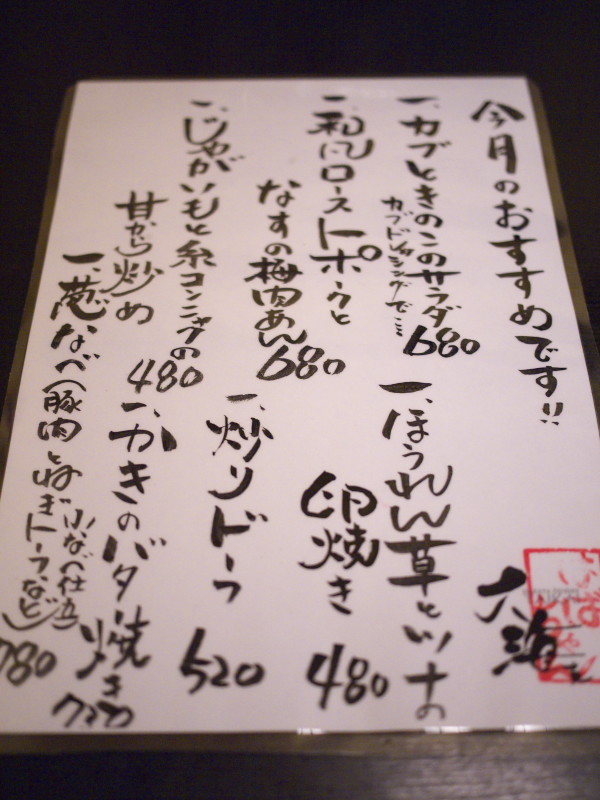 今月のおすすめです!!
一、カブときのこのサラダ
カブドレッシングで… 680
一、ほうれん草とツナの
卵焼き 480
一、和風ローストポークと
なすの梅肉あん 680
一、炒りドーフ 520
一、じゃがいもと糸コンニャクの
甘から炒め 480
一、かきのバター焼き 720
一、葱なべ(豚肉とねぎトーフなど)
小なべ仕立 780
六海